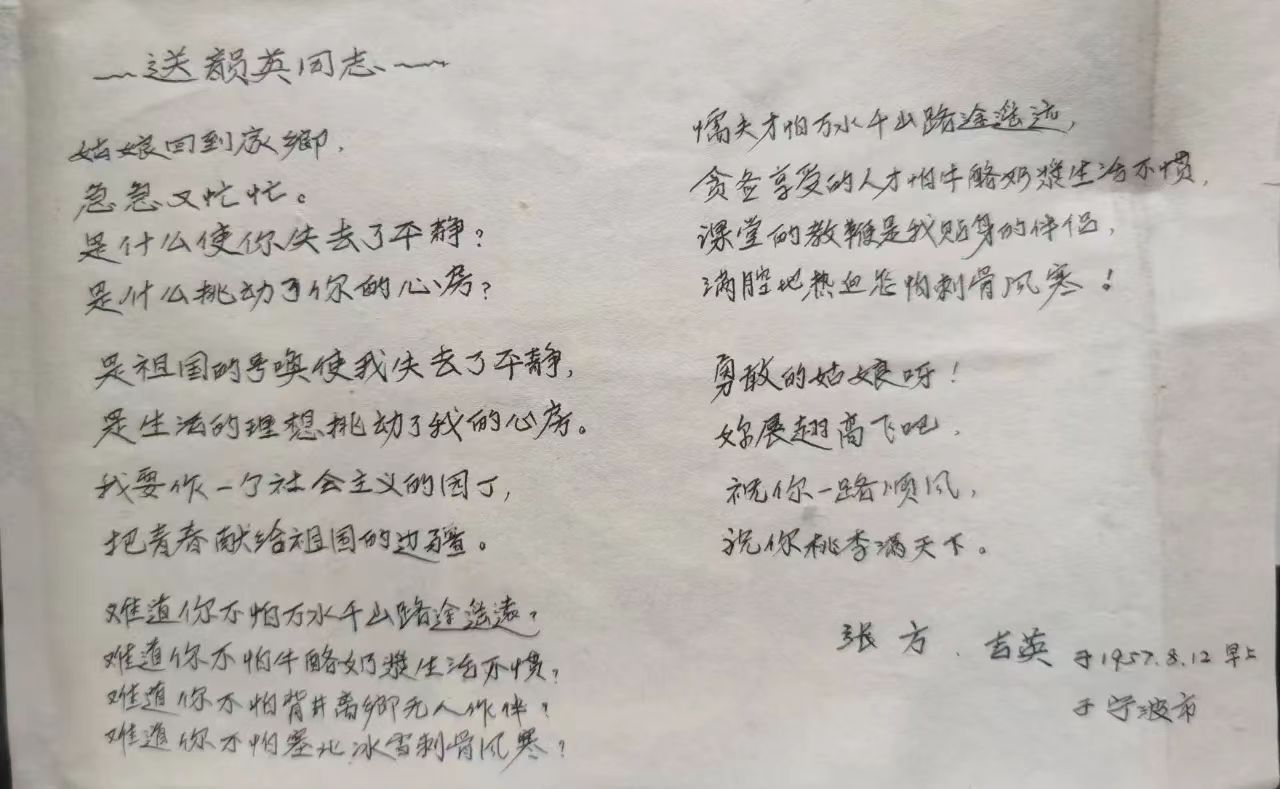 送韻英同志
姑娘回到家鄉，
急急又忙忙。
是什么使你失去了平静？
是什么挑动了你的心房？
是祖国的号唤使我失去了平静，
是生活的理想挑动了我的心房。
我要作一个社会主义的园丁，
把青春献给祖国的边疆。
难道你不怕万水千山路途遥遠？
难道你不怕牛酪奶浆生活不惯？
难道你不怕背井离鄉无人作伴？
难道你不怕塞北冰雪刺骨风寒？
懦夫才怕万水千山路途遥远，
贪图享受的人才怕牛酪奶浆生活不惯，
课堂的教鞭是我贴身的伴侣，
满腔地热血怎怕刺骨风寒！
勇敢的姑娘呀！
你展翅高飞吧，
祝你一路顺风，
祝你桃李满天下。
张方、吉英 于1957.8.12早上
于宁波市